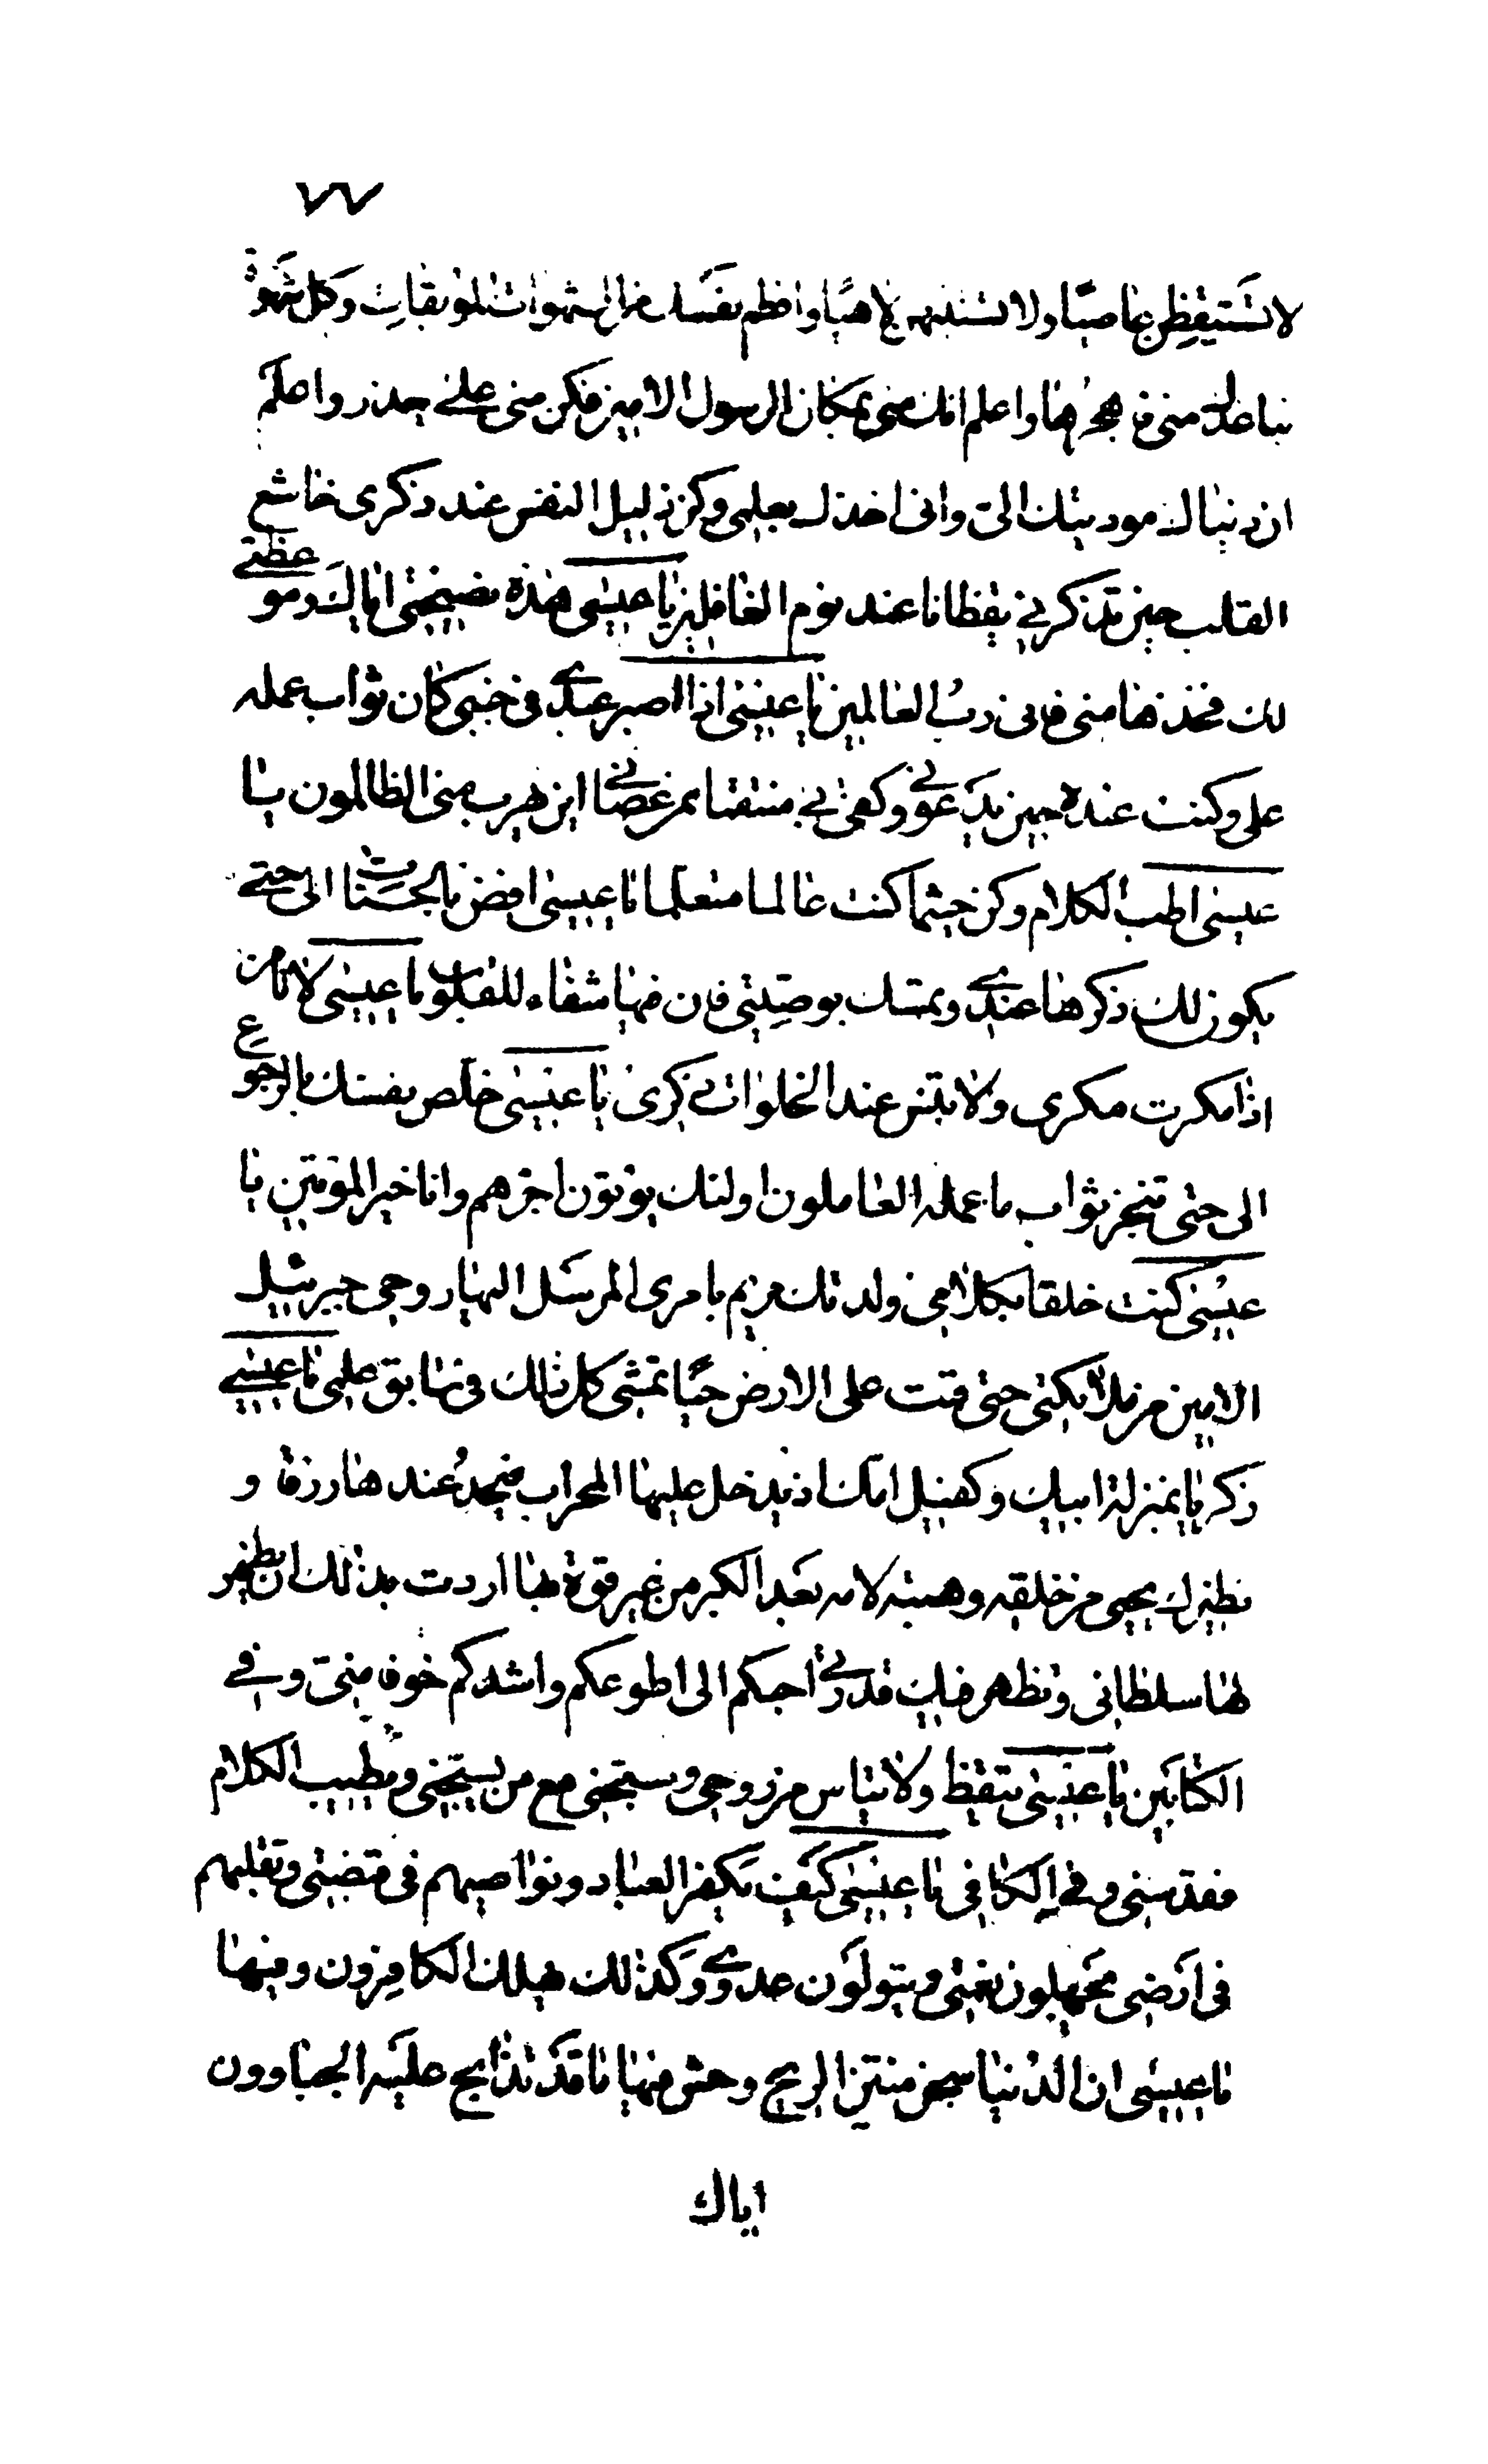 ٧٧
لا تستيقظن عاصيا ولا تستنبهن لاهيا وافطم نفسك عن الشهوات الموبقات وكل شهوة
تباعدك مني فاهجرها واعلم انك مني بمكان الرسول الامين فكن مني على حذر واعلم
ان دنياك مؤديتك الي واني اخذك بعلمي وكن ذليل النفس عند ذكري خاشع
القلب حين تذكرني يقظانا عند نوم الغافلين يا عيسى هذه نصيحتي اياك وموعظتي
لك فخذها مني فاني رب العالمين يا عيسى اذا صبر عبدي في جنبي كان ثواب عمله
علي وكنت عنده حين يدعوني وكفى بي منتقما ممن عصاني اين يهرب مني الظالمون يا
عيسى اطب الكلام وكن حيثما كنت عالما متعلما يا عيسى افض بالحسنات الي حتى
يكون لك ذكرها عندي وتمسك بوصيتي فان فيها شفاء للقلوب يا عيسى لا تامن
اذا مكرت مكري ولا تنس عند الخلوات ذكري يا عيسى خلص نفسك بالرجوع
الي حتى تتنجز ثواب ما عمله العاملون اولئك يؤتون اجرهم وانا خير المؤتين يا
عيسى كنت خلقا بكلامي ولدتك مريم بامري المرسل اليها روحي جبرئيل
الامين من ملائكتي حتى قمت على الارض حيا تمشي كل ذلك في سابق علمي يا عيسى
زكريا بمنزلة ابيك وكفيل امك اذ يدخل عليها المحراب فيجد عندها رزقا و
نظيرك يحيى من خلقي وهبته لامه بعد الكبر من غير قوة بها اردت بذلك ان يظهر
لها سلطاني وتظهر فيك قدرتي احبكم الي اطوعكم واشدكم خوفا مني وفي
الكتابين يا عيسى تيقظ ولا تياس من روحي وسبحني مع من يسبحني وبطيب الكلام
فقدسني وفي الكافي يا عيسى كيف يكفر العباد ونواصيهم في قبضتي وتقلبهم
في ارضي يجهلون نعمتي ويتولون عدوي وكذلك يهلك الكافرون ومنها
يا عيسى ان الدنيا سجن منتن الريح وحش فيها ما قد تذابح عليه الجبارون
اياك